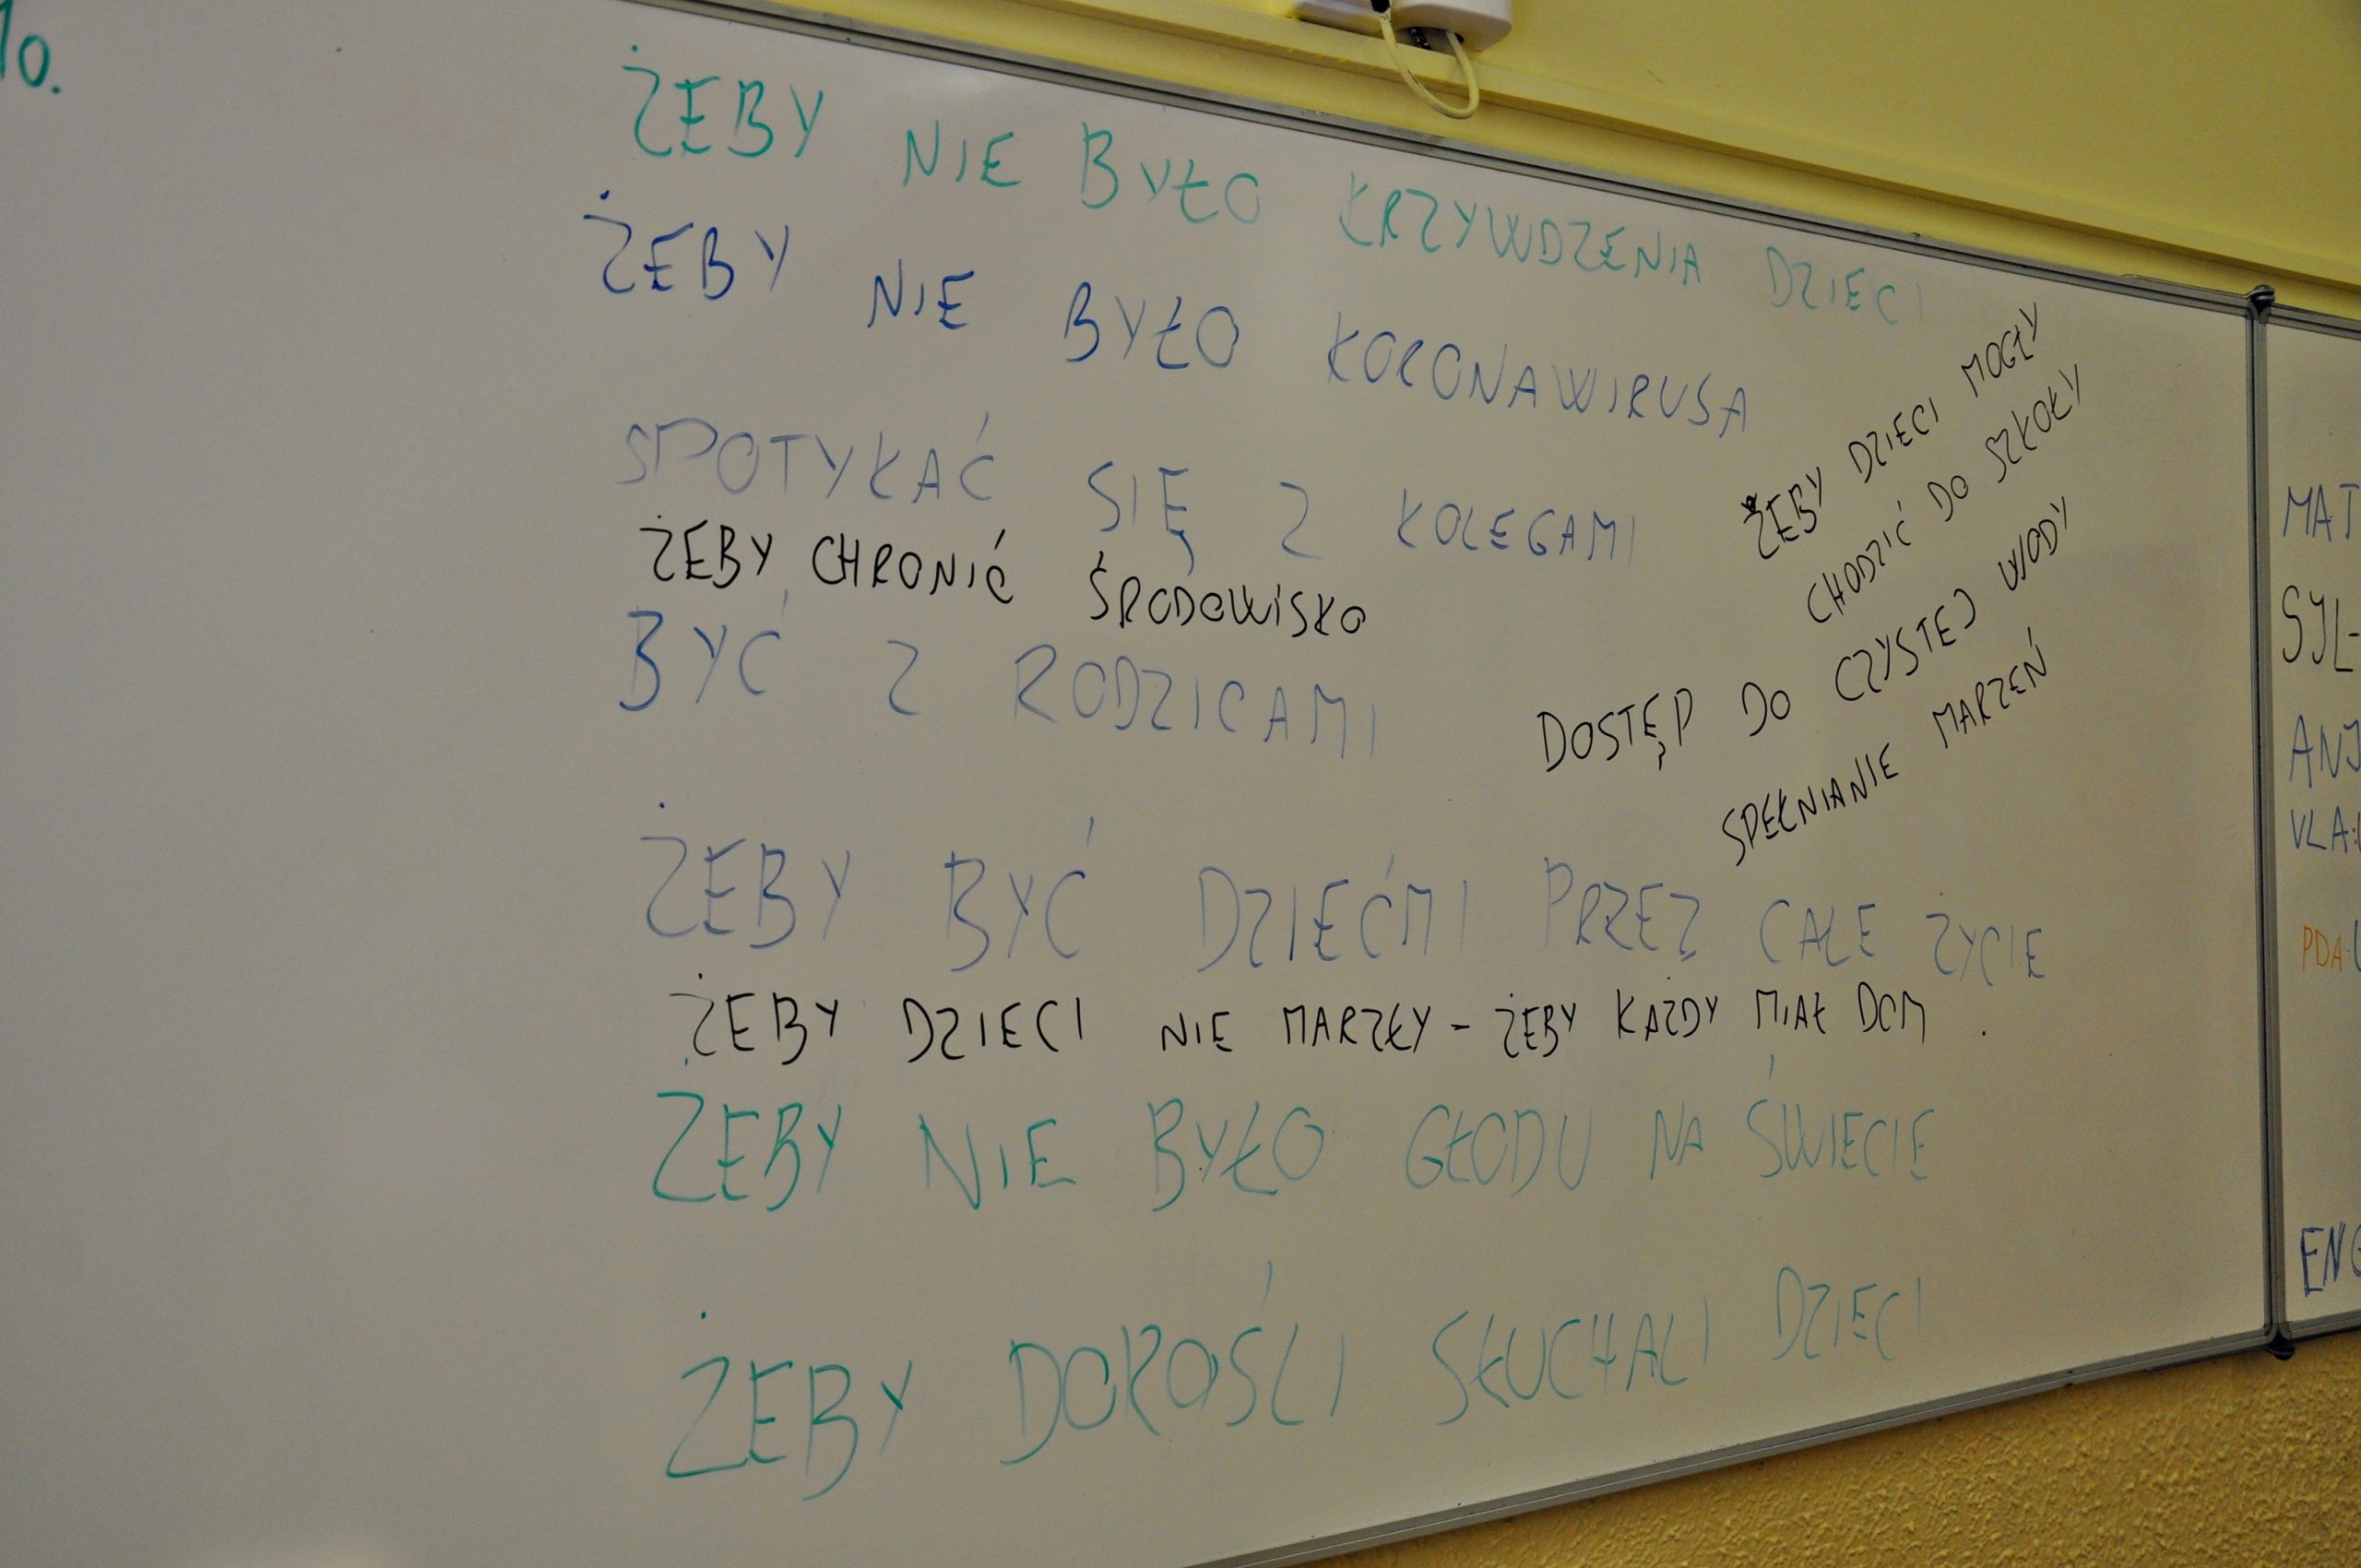 10.
ŻEBY NIE BYŁO KRZYWDZENIA DZIECI
ŻEBY NIE BYŁO KORONAWIRUSA
SPOTYKAĆ SIĘ Z KOLEGAMI
ŻEBY CHRONIĆ ŚRODOWISKO
BYĆ Z RODZICAMI
ŻEBY DZIECI MOGŁY
CHODZIĆ DO SZKOŁY
DOSTĘP DO CZYSTEJ WODY
SPEŁNIANIE MARZEŃ
ŻEBY BYĆ DZIEĆMI PRZEZ CAŁE ŻYCIE
ŻEBY DZIECI NIE MARZŁY - ŻEBY KAŻDY MIAŁ DOM.
ŻEBY NIE BYŁO GŁODU NA ŚWIECIE
ŻEBY DOROŚLI SŁUCHALI DZIECI
MAT
SYL-
ANJ
VLA:
PDA:
ENG